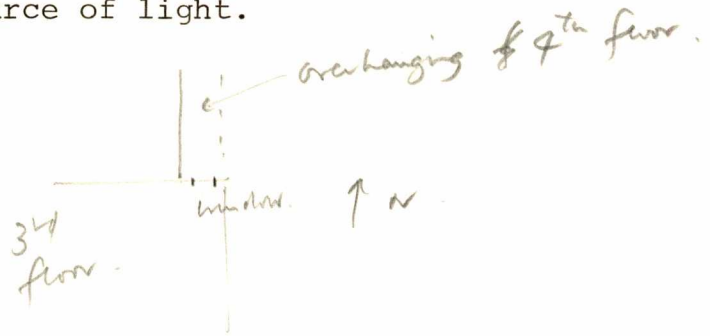 rce of light.
overhanging 4th floor.
window. ↑ N
3rd
floor.